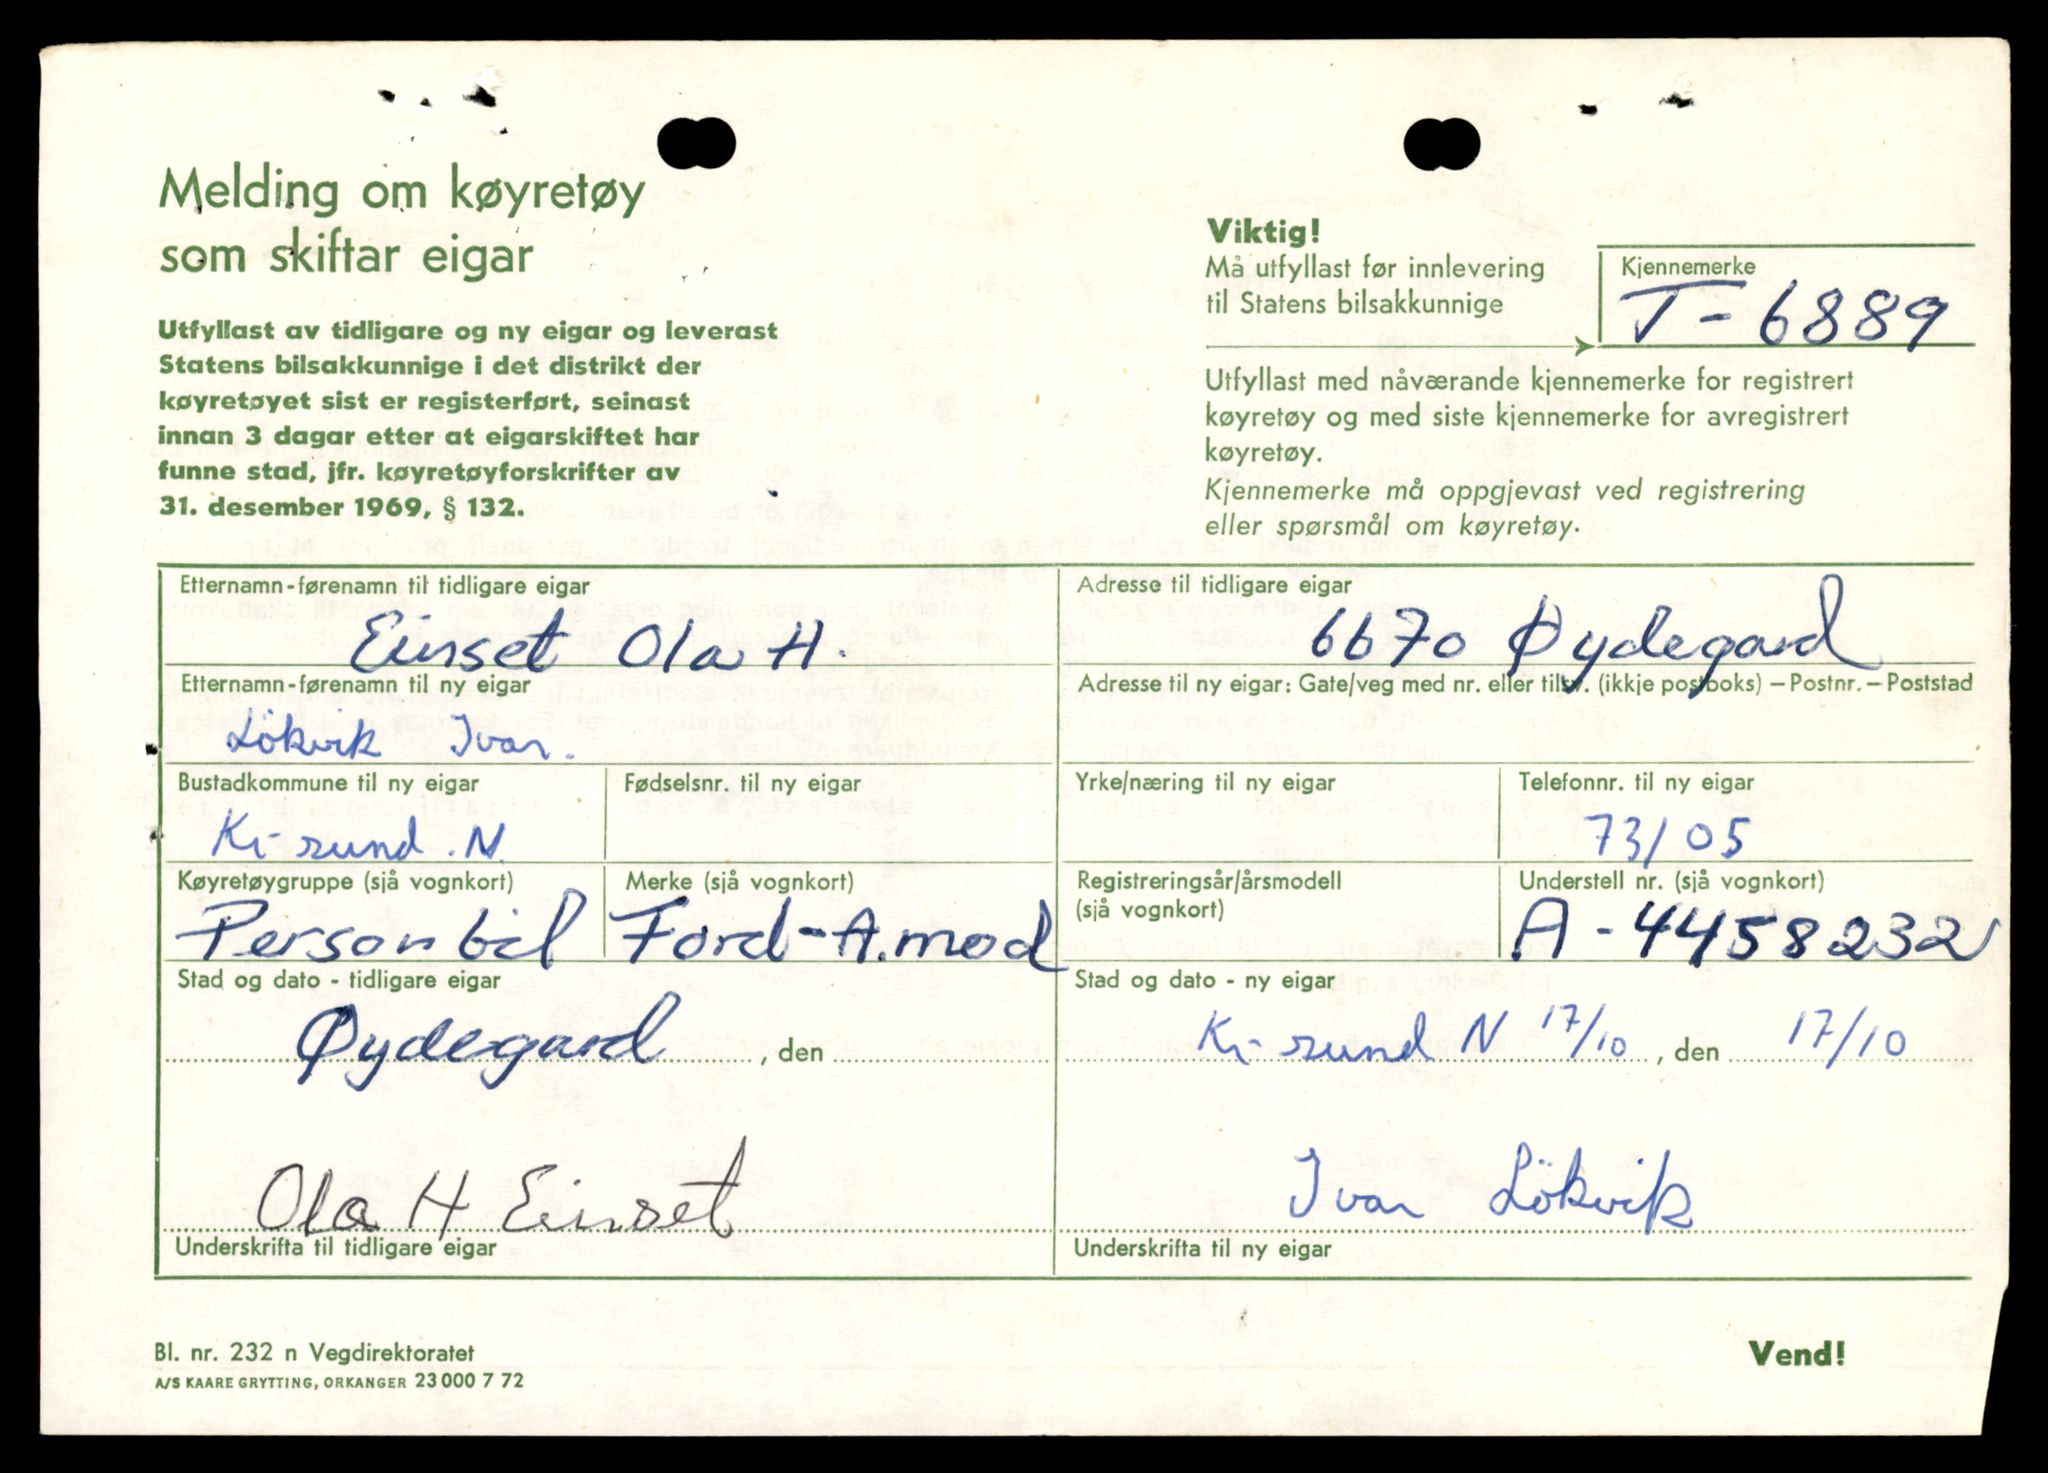 Melding om køyretøy
som skiftar eigar
Utfyllast av tidligare og ny eigar og leverast
Statens bilsakkunnige i det distrikt der
køyretøyet sist er registerført, seinast
innan 3 dagar etter at eigarskiftet har
funne stad, jfr. køyretøyforskrifter av
31. desember 1969, § 132.
Viktig!
Må utfyllast før innlevering
til Statens bilsakkunnige
Kjennemerke
T-6889
Utfyllast med nåværande kjennemerke for registrert
køyretøy og med siste kjennemerke for avregistrert
køyretøy.
Kjennemerke må oppgjevast ved registrering
eller spørsmål om køyretøy.
Etternamn-førenamn til tidligare eigar
Einset Ola H.
Adresse til tidligare eigar
6670 Øydegard
Etternamn-førenamn til ny eigar
Lökvik Ivar.
Adresse til ny eigar: Gate/veg med nr. eller tilsv. (ikkje postboks) – Postnr. – Poststad
Bustadkommune til ny eigar
Kr-sund N.
Fødselsnr. til ny eigar
Yrke/næring til ny eigar
Telefonnr. til ny eigar
73105
Køyretøygruppe (sjå vognkort)
Personbil
Merke (sjå vognkort)
Ford-A.mod
Registreringsår/årsmodell
(sjå vognkort)
Understell nr. (sjå vognkort)
A-4458232
Stad og dato - tidligare eigar
Øydegard , den
Stad og dato - ny eigar
Kr-sund N 17/10 , den 17/10
Ola H Einset
Underskrifta til tidligare eigar
Ivar Lökvik
Underskrifta til ny eigar
Bl. nr. 232 n Vegdirektoratet
A/S KAARE GRYTTING, ORKANGER 23 000 7 72
Vend!